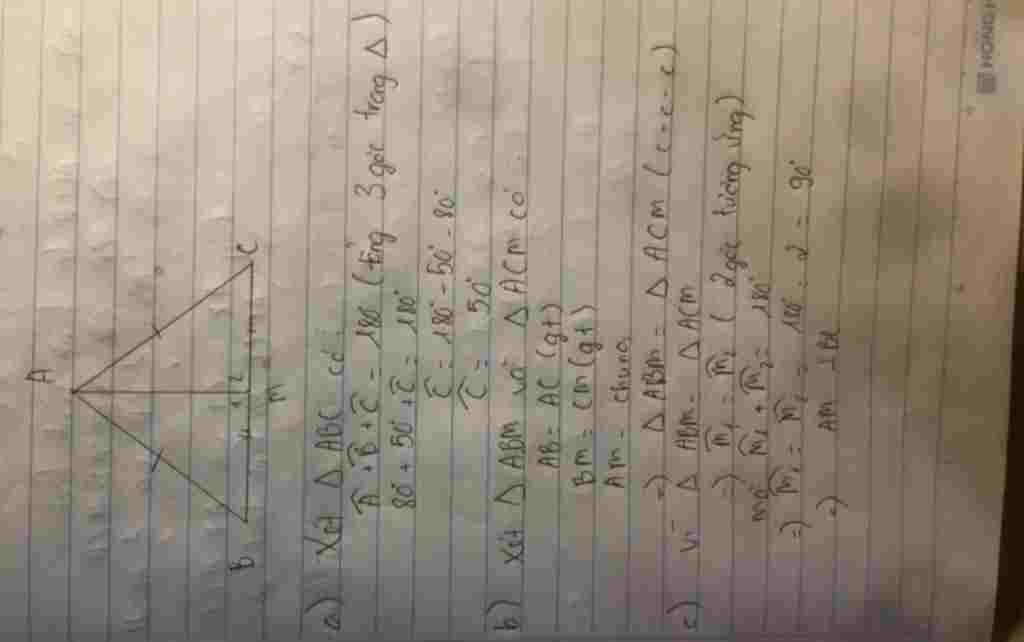 A
B
C
1 2
M
a) Xét Δ ABC có:
Â + B̂ + Ĉ = 180° (tổng 3 góc trong Δ)
80° + 50° + Ĉ = 180°
Ĉ = 180° - 50° - 80°
Ĉ = 50°
b) Xét Δ ABM và Δ ACM có:
AB = AC (gt)
BM = CM (gt)
AM = chung
=) Δ ABM = Δ ACM (c-c-c)
c) Vì Δ ABM = Δ ACM
=) M̂₁ = M̂₂ (2 góc tương ứng)
mà M̂₁ + M̂₂ = 180°
=) M̂₁ = M̂₂ = 180° : 2 = 90°
=) AM ⊥ BC